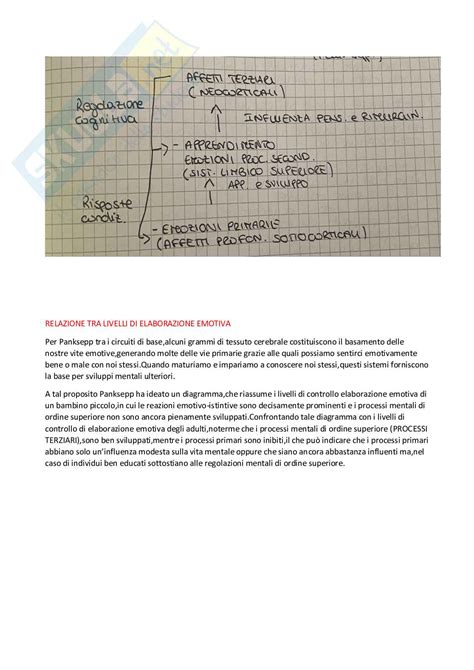 AFFETTI TERZIARI
(NEOCORTICALI)
Regolazione
cognitiva
INFLUENZA PENS. e RIMURGIN.
- APPRENDIMENTO
EMOZIONI PROC. SECOND.
(SIST. LIMBICO SUPERIORE)
APP. e SVILUPPO
Risposte
condiz.
- EMOZIONI PRIMARIE
(AFFETTI PROFON. SOTTOCORTICALI)
SKUOLA.net
RELAZIONE TRA LIVELLI DI ELABORAZIONE EMOTIVA
Per Panksepp tra i circuiti di base,alcuni grammi di tessuto cerebrale costituiscono il basamento delle
nostre vite emotive,generando molte delle vie primarie grazie alle quali possiamo sentirci emotivamente
bene o male con noi stessi.Quando maturiamo e impariamo a conoscere noi stessi,questi sistemi forniscono
la base per sviluppi mentali ulteriori.
A tal proposito Panksepp ha ideato un diagramma,che riassume i livelli di controllo elaborazione emotiva di
un bambino piccolo,in cui le reazioni emotivo-istintive sono decisamente prominenti e i processi mentali di
ordine superiore non sono ancora pienamente sviluppati.Confrontando tale diagramma con i livelli di
controllo di elaborazione emotiva degli adulti,noterme che i processi mentali di ordine superiore (PROCESSI
TERZIARI),sono ben sviluppati,mentre i processi primari sono inibiti,il che può indicare che i processi primari
abbiano solo un'influenza modesta sulla vita mentale oppure che siano ancora abbastanza influenti ma,nel
caso di individui ben educati sottostiano alle regolazioni mentali di ordine superiore.